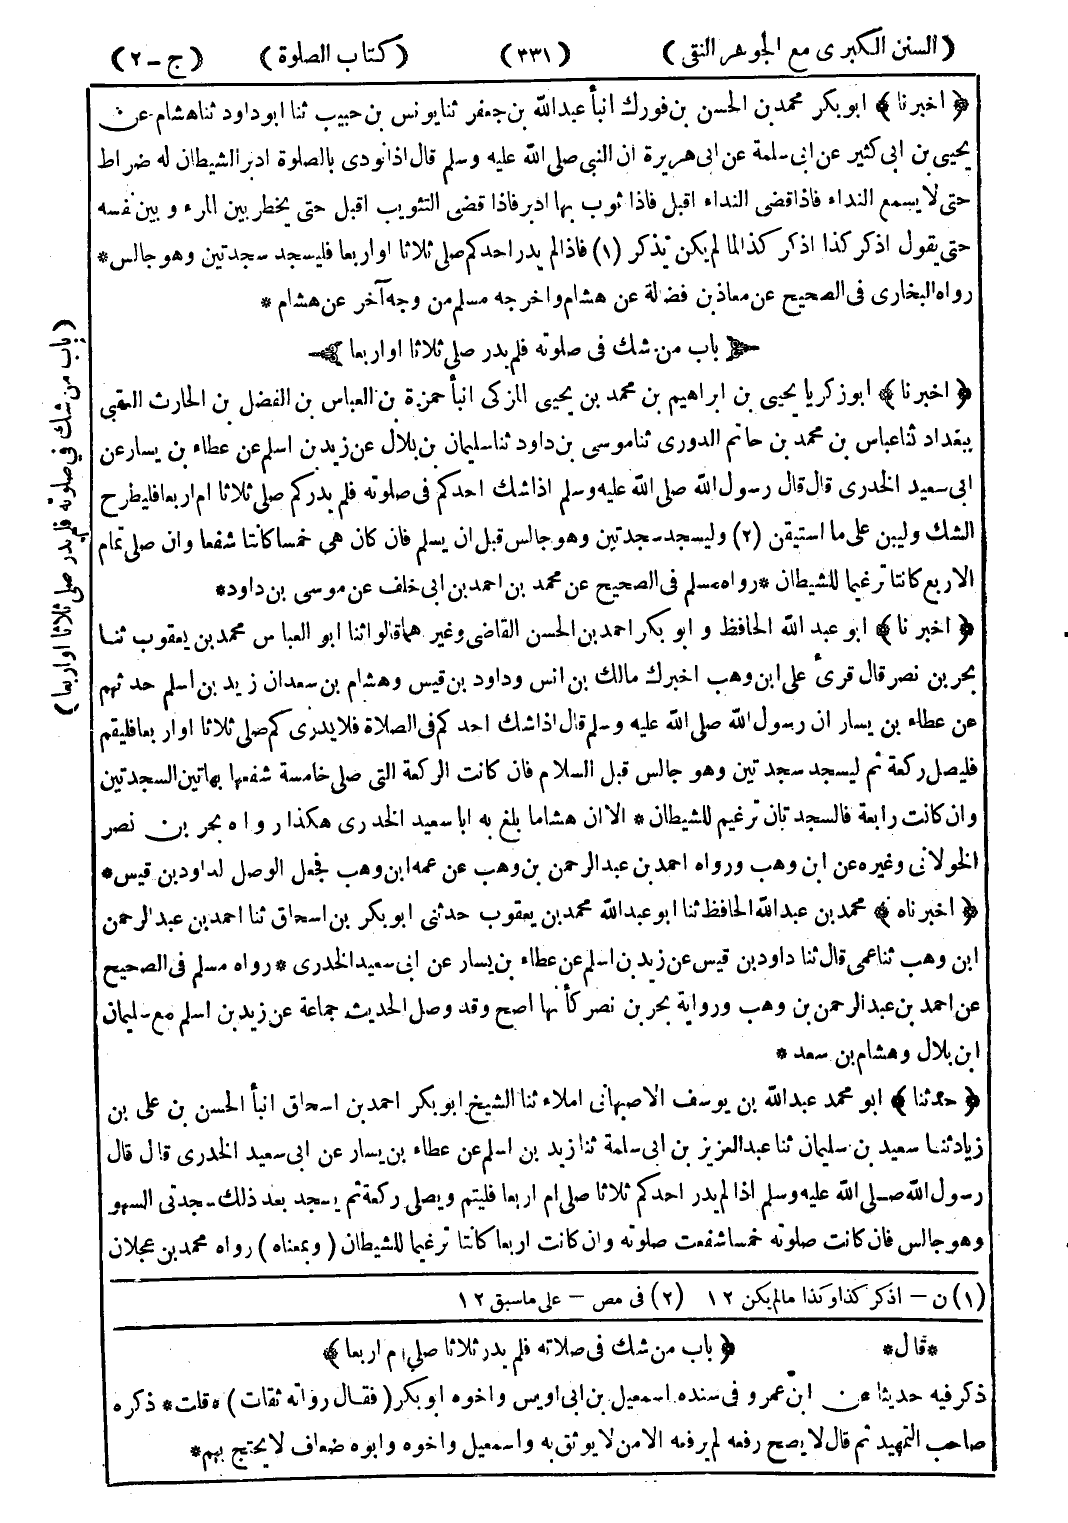 (السنن الكبرى مع الجوهر النقى) (٣٣١) (كتاب الصلوة) (ج-٢)
﴿اخبرنا﴾ ابو بكر محمد بن الحسن بن فورك انبأ عبدالله بن جعفر ثنا يونس بن حبيب ثنا ابو داود ثنا هشام عن
يحيى بن ابى كثير عن ابى سلمة عن ابى هريرة ان النبى صلى الله عليه وسلم قال اذا نودى بالصلوة ادبر الشيطان له ضراط
حتى لا يسمع النداء فاذا قضى النداء اقبل فاذا ثوب بها ادبر فاذا قضى التثويب اقبل حتى يخطر بين المرء و بين نفسه
حتى يقول اذكر كذا اذكر كذا لما لم يكن يذكر (١) فاذا لم يدر احدكم صلى ثلاثا او اربعا فليسجد سجدتين وهو جالس *
رواه البخارى فى الصحيح عن معاذ بن فضالة عن هشام واخرجه مسلم من وجه آخر عن هشام *
باب من شك فى صلوته فلم يدر صلى ثلاثا او اربعا
﴿اخبرنا﴾ ابو زكريا يحيى بن ابراهيم بن محمد بن يحيى المزكى انبأ حمزة بن العباس بن الفضل بن الحارث العقبى
ببغداد ثنا عباس بن محمد بن حاتم الدورى ثنا موسى بن داود ثنا سليمان بن بلال عن زيد بن اسلم عن عطاء بن يسار عن
ابى سعيد الخدرى قال قال رسول الله صلى الله عليه وسلم اذا شك احدكم فى صلوته فلم يدر كم صلى ثلاثا ام اربعا فليطرح
الشك وليبن على ما استيقن (٢) وليسجد سجدتين وهو جالس قبل ان يسلم فان كان هى خمسا كانتا شفعا وان صلى تمام
الاربع كانتا ترغيما للشيطان * رواه مسلم فى الصحيح عن محمد بن احمد بن ابى خلف عن موسى بن داود *
﴿اخبرنا﴾ ابو عبد الله الحافظ و ابو بكر احمد بن الحسن القاضى وغيرهما قالوا ثنا ابو العباس محمد بن يعقوب ثنا
بحر بن نصر قال قرئ على ابن وهب اخبرك مالك بن انس وداود بن قيس وهشام بن سعد ان زيد بن اسلم حدثهم
عن عطاء بن يسار ان رسول الله صلى الله عليه وسلم قال اذا شك احدكم فى الصلاة فلا يدرى كم صلى ثلاثا او اربعا فليقم
فليصل ركعة ثم ليسجد سجدتين وهو جالس قبل السلام فان كانت الركعة التى صلى خامسة شفعها بهاتين السجدتين
وان كانت رابعة فالسجدتان ترغيم للشيطان * الا ان هشاما بلغ به ابا سعيد الخدرى هكذا رواه بحر بن نصر
الخولانى وغيره عن ابن وهب ورواه احمد بن عبدالرحمن بن وهب عن عمه ابن وهب فجعل الوصل لداود بن قيس *
﴿اخبرناه﴾ محمد بن عبدالله الحافظ ثنا ابو عبدالله محمد بن يعقوب حدثنى ابو بكر بن اسحاق ثنا احمد بن عبدالرحمن
ابن وهب ثنا عمى قال ثنا داود بن قيس عن زيد بن اسلم عن عطاء بن يسار عن ابى سعيد الخدرى * رواه مسلم فى الصحيح
عن احمد بن عبدالرحمن بن وهب ورواية بحر بن نصر كأنها اصح وقد وصل الحديث جماعة عن زيد بن اسلم مع سليمان
ابن بلال وهشام بن سعد *
﴿حدثنا﴾ ابو محمد عبدالله بن يوسف الاصبهانى املاء ثنا الشيخ ابو بكر احمد بن اسحاق انبأ الحسن بن على بن
زياد ثنا سعيد بن سليمان ثنا عبدالعزيز بن ابى سلمة ثنا زيد بن اسلم عن عطاء بن يسار عن ابى سعيد الخدرى قال قال
رسول الله صلى الله عليه وسلم اذا لم يدر احدكم ثلاثا صلى ام اربعا فليتم ويصلى ركعة ثم يسجد بعد ذلك سجدتى السهو
وهو جالس فان كانت صلوته خمسا شفعت صلوته وان كانت اربعا كانتا ترغيما للشيطان (وبمعناه) رواه محمد بن عجلان
(١) ن - اذكر كذا وكذا مالم يكن ١٢ (٢) فى مص - على ماسبق ١٢
*قال* ﴿باب من شك فى صلاته فلم يدر ثلاثا صلى ام اربعا﴾
ذكر فيه حديثا عن ابن عمر و فى سنده اسمعيل بن ابى اويس واخوه ابو بكر (فقال رواته ثقات) * قلت * ذكره
صاحب التمهيد ثم قال لا يصح رفعه لم يرفعه الا من لا يوثق به واسمعيل واخوه وابوه ضعاف لا يحتج بهم *
(باب من شك في صلوته فلم يدر صلى ثلاثا او اربعا)